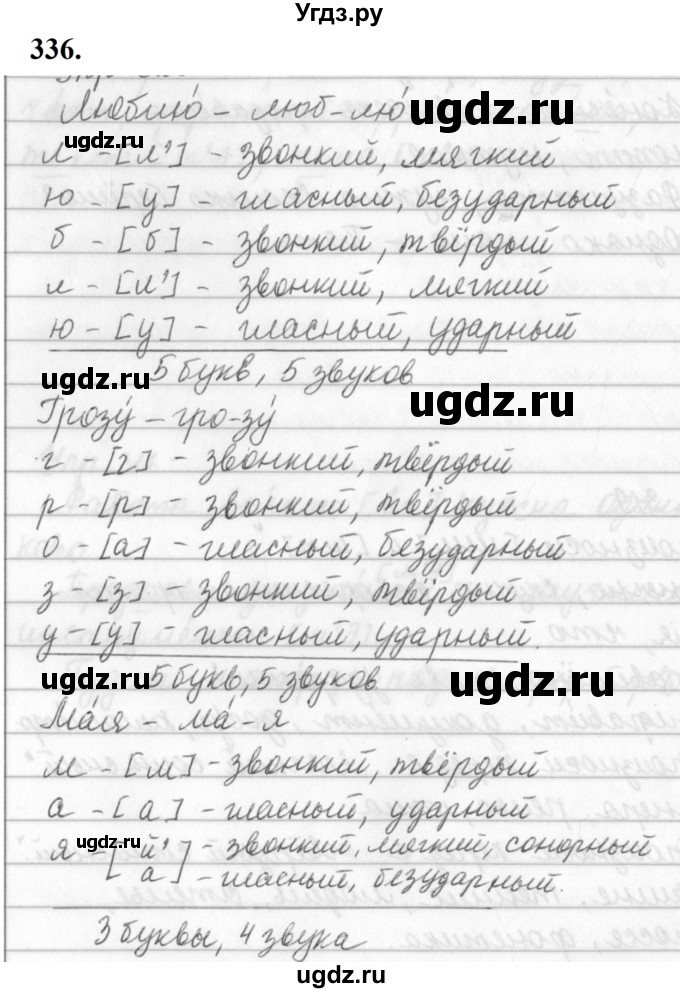 Угдз.ру
336.
Люблю́ – люб-лю́
ugdz.ru
ugdz.ru
л – [л'] – звонкий, мягкий
ю – [у] – гласный, безударный
б – [б] – звонкий, твёрдый
л – [л'] – звонкий, мягкий
ю – [у] – гласный, ударный
5 букв, 5 звуков
ugdz.ru
ugdz.ru
Грозу́ – гро-зу́
г – [г] – звонкий, твёрдый
р – [р] – звонкий, твёрдый
о – [а] – гласный, безударный
з – [з] – звонкий, твёрдый
у – [у] – гласный, ударный.
5 букв, 5 звуков
ugdz.ru
ugdz.ru
Ма́я – ма́-я
м – [м] – звонкий, твёрдый
а – [а] – гласный, ударный
ugdz.ru
я – [й' – звонкий, мягкий, сонорный
а] – гласный, безударный.
3 буквы, 4 звука
ugdz.ru
ugdz.ru